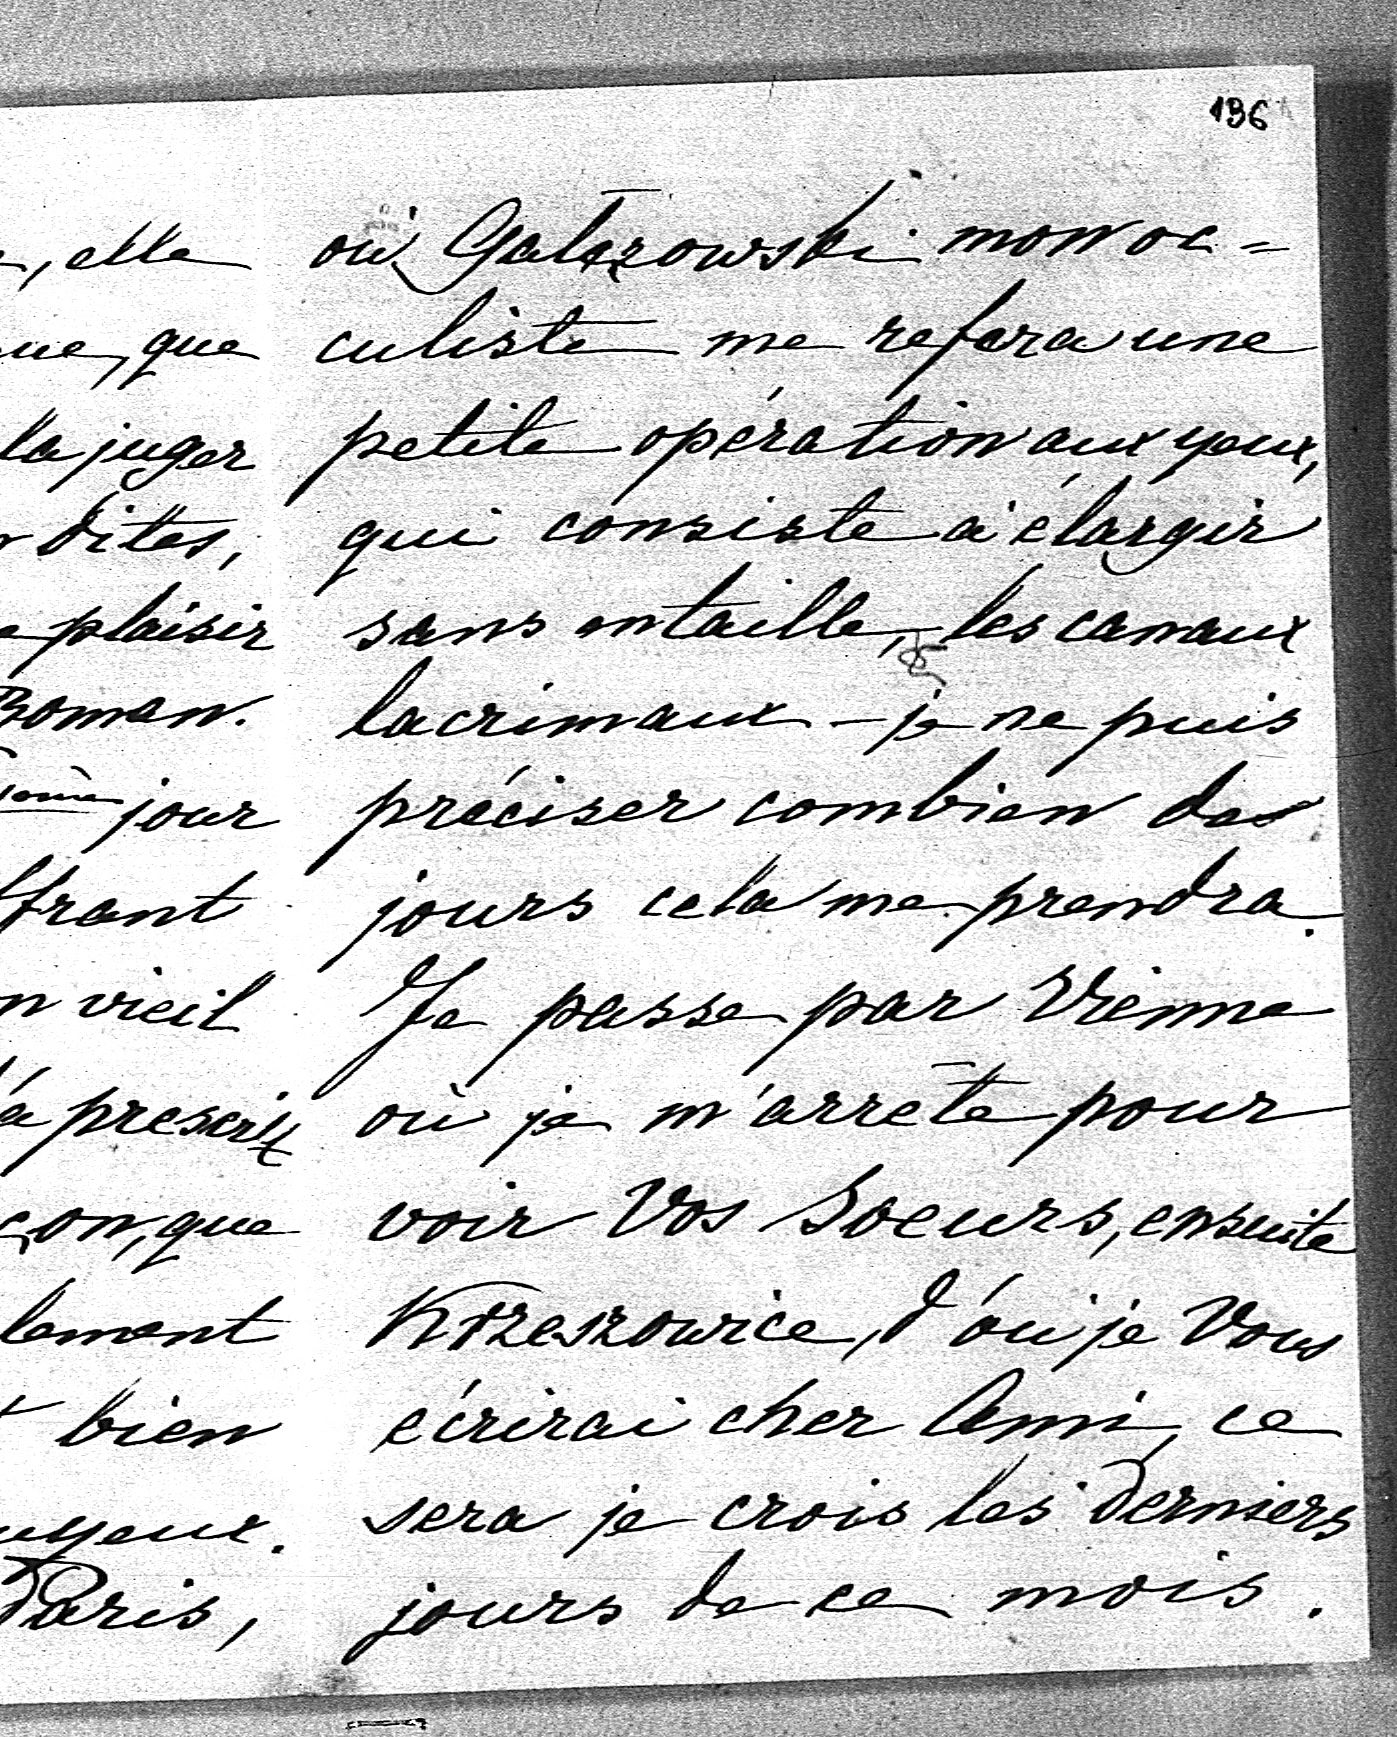 136
, elle
que
la juger
dites,
plaisir
Roman.
jour
ffrant
vieil
prescrit
çon, que
lement
bien
yeux.
Paris,
où Galezowski mon oc=
culiste me refera une
petite opération aux yeux,
qui consiste à élargir
sans entaille, les canaux
lacrimaux – je ne puis
préciser combien de
jours cela me prendra.
Je passe par Vienne
où je m'arrête pour
voir Vos Soeurs, ensuite
Krzeszowice, d'où je Vous
écrirai cher Ami, ce
sera je crois les derniers
jours de ce mois.